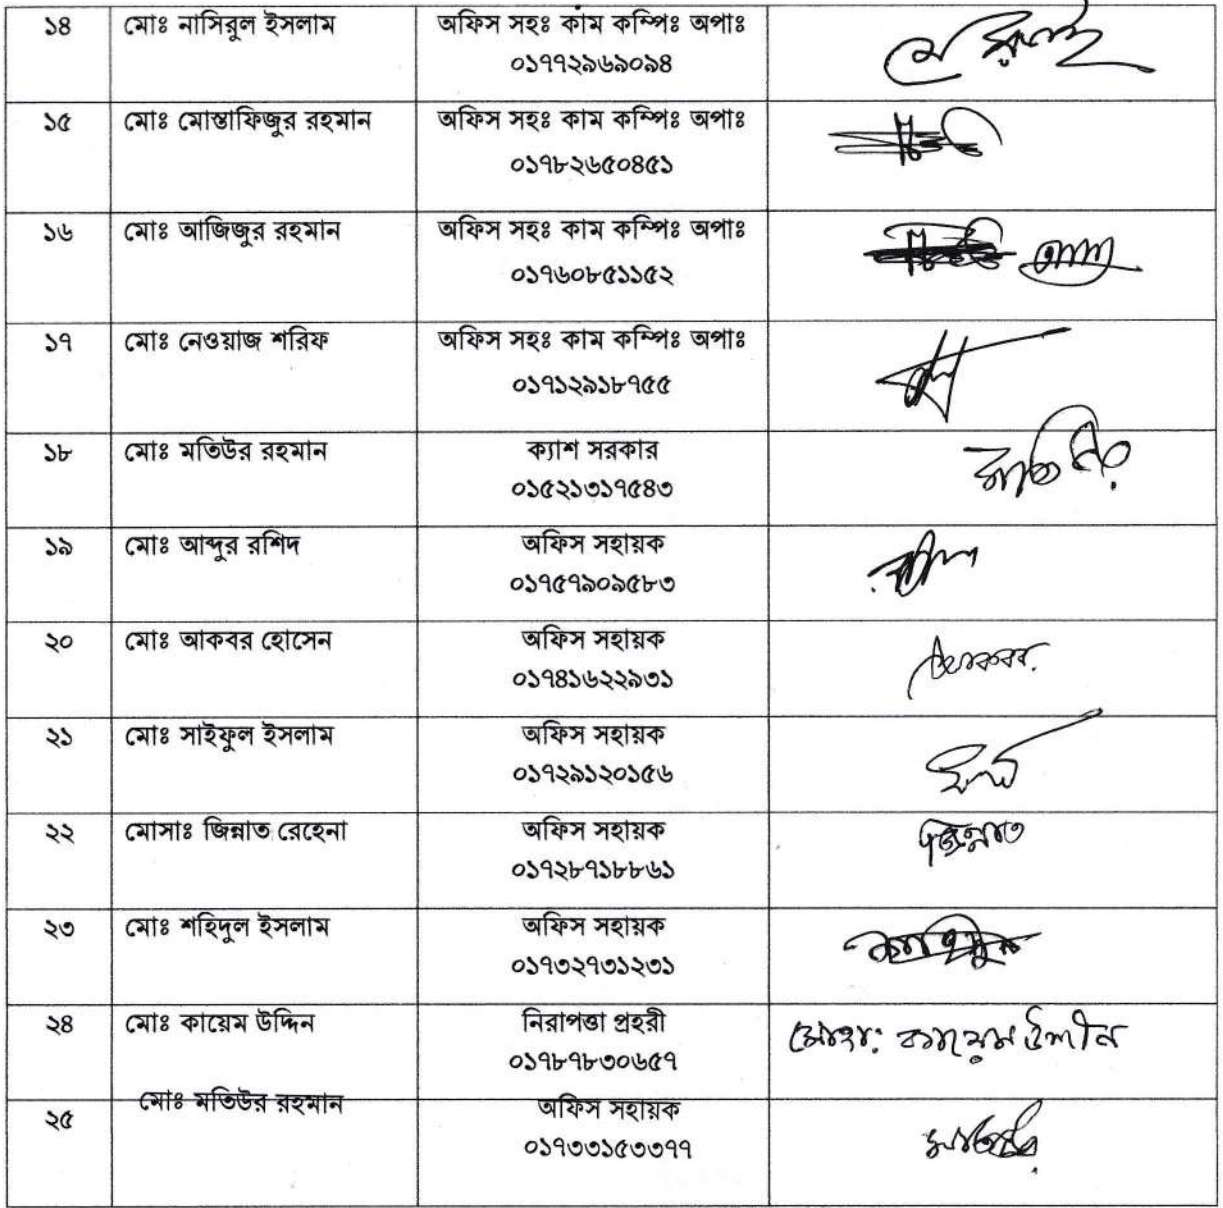 ১৪ মোঃ নাসিরুল ইসলাম অফিস সহঃ কাম কম্পিঃ অপাঃ
০১৭৭২৯৬৯০৯৪
১৫ মোঃ মোস্তাফিজুর রহমান অফিস সহঃ কাম কম্পিঃ অপাঃ
০১৭৮২৬৫০৪৫১
১৬ মোঃ আজিজুর রহমান অফিস সহঃ কাম কম্পিঃ অপাঃ
০১৭৬০৮৫১১৫২
১৭ মোঃ নেওয়াজ শরিফ অফিস সহঃ কাম কম্পিঃ অপাঃ
০১৭১২৯১৮৭৫৫
১৮ মোঃ মতিউর রহমান ক্যাশ সরকার
০১৫২১৩১৭৫৪৩
১৯ মোঃ আব্দুর রশিদ অফিস সহায়ক
০১৭৫৭৯০৯৫৮৩
২০ মোঃ আকবর হোসেন অফিস সহায়ক
০১৭৪১৬২২৯৩১ আকবর
২১ মোঃ সাইফুল ইসলাম অফিস সহায়ক
০১৭২৯১২০১৫৬
২২ মোসাঃ জিন্নাত রেহেনা অফিস সহায়ক জিন্নাত
০১৭২৮৭১৮৮৬১
২৩ মোঃ শহিদুল ইসলাম অফিস সহায়ক
০১৭৩২৭৩১২৩১
২৪ মোঃ কায়েম উদ্দিন নিরাপত্তা প্রহরী মোহাঃ কায়েম উদ্দীন
০১৭৮৭৮৩০৬৫৭
২৫ মোঃ মতিউর রহমান অফিস সহায়ক
০১৭৩৩১৫৩৩৭৭